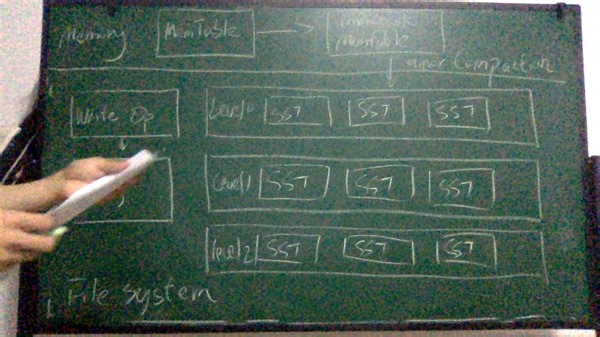 Memory
MemTable
Immutable
Memtable
minor Compaction
Write Op
Level0 SST SST SST
Level1 SST SST SST
Level2 SST SST SST
File system